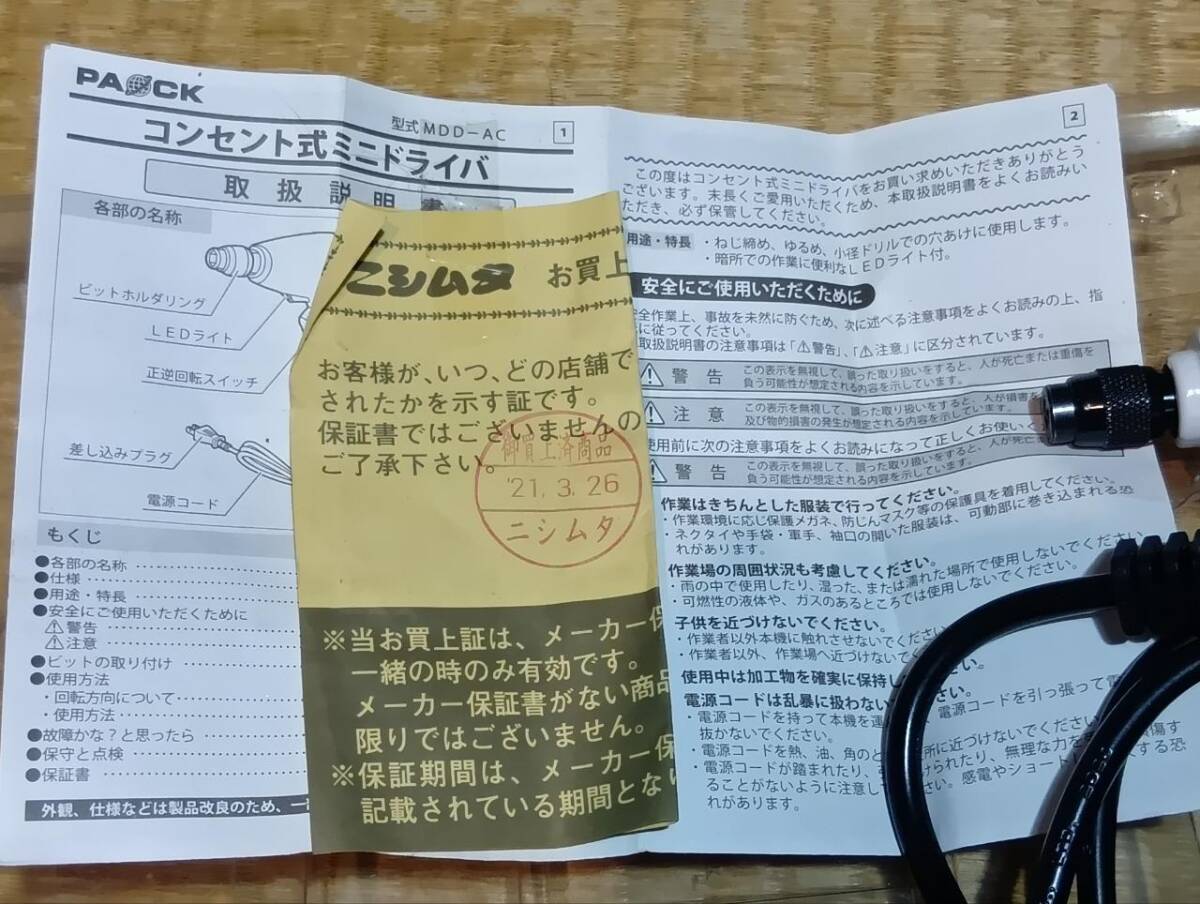 PAOCK
型式 MDD-AC
1
コンセント式ミニドライバ
取扱説明書
各部の名称
ビットホルダリング
LEDライト
正逆回転スイッチ
差し込みプラグ
電源コード
もくじ
●各部の名称
●仕様
●用途・特長
●安全にご使用いただくために
⚠警告
⚠注意
●ビットの取り付け
●使用方法
・回転方向について
・使用方法
●故障かな？と思ったら
●保守と点検
●保証書
外観、仕様などは製品改良のため、一
ニシムタ お買上
お客様が、いつ、どの店舗で
されたかを示す証です。
保証書ではございませんの
ご了承下さい。
御買上済商品
'21.3.26
ニシムタ
※当お買上証は、メーカー保
一緒の時のみ有効です。
メーカー保証書がない商品
限りではございません。
※保証期間は、メーカー保
記載されている期間とな
2
この度はコンセント式ミニドライバをお買い求めいただきありがとう
ございます。末長くご愛用いただくため、本取扱説明書をよくお読みい
ただき、必ず保管してください。
用途・特長
・ねじ締め、ゆるめ、小径ドリルでの穴あけに使用します。
・暗所での作業に便利なLEDライト付。
安全にご使用いただくために
安全作業上、事故を未然に防ぐため、次に述べる注意事項をよくお読みの上、指
に従ってください。
取扱説明書の注意事項は「⚠警告」、「⚠注意」に区分されています。
⚠ 警告 この表示を無視して、誤った取り扱いをすると、人が死亡または重傷を
負う可能性が想定される内容を示しています。
⚠ 注意 この表示を無視して、誤った取り扱いをすると、人が損害を
及び物的損害の発生が想定される内容を示しています。
使用前に次の注意事項をよくお読みになって正しくお使いく
⚠ 警告 この表示を無視して、誤った取り扱いをすると、人が死亡
負う可能性が想定される内容を示しています。
作業はきちんとした服装で行ってください。
・作業環境に応じ保護メガネ、防じんマスク等の保護具を着用してください。
・ネクタイや手袋・軍手、袖口の開いた服装は、可動部に巻き込まれる恐
れがあります。
作業場の周囲状況も考慮してください。
・雨の中で使用したり、湿った、または濡れた場所で使用しないでください。
・可燃性の液体や、ガスのあるところでは使用しないでください。
子供を近づけないでください。
・作業者以外本機に触れさせないでください。
・作業者以外、作業場へ近づけないで
使用中は加工物を確実に保持し
電源コードは乱暴に扱わない
・電源コードを持って本機を運
電源コードを引っ張って
抜かないでください。
・電源コードを熱、油、角のと
所に近づけないでください
・電源コードが踏まれたり、
けられたり、無理な力を
ることがないように注意し
さい。感電やショート
する恐
れがあります。